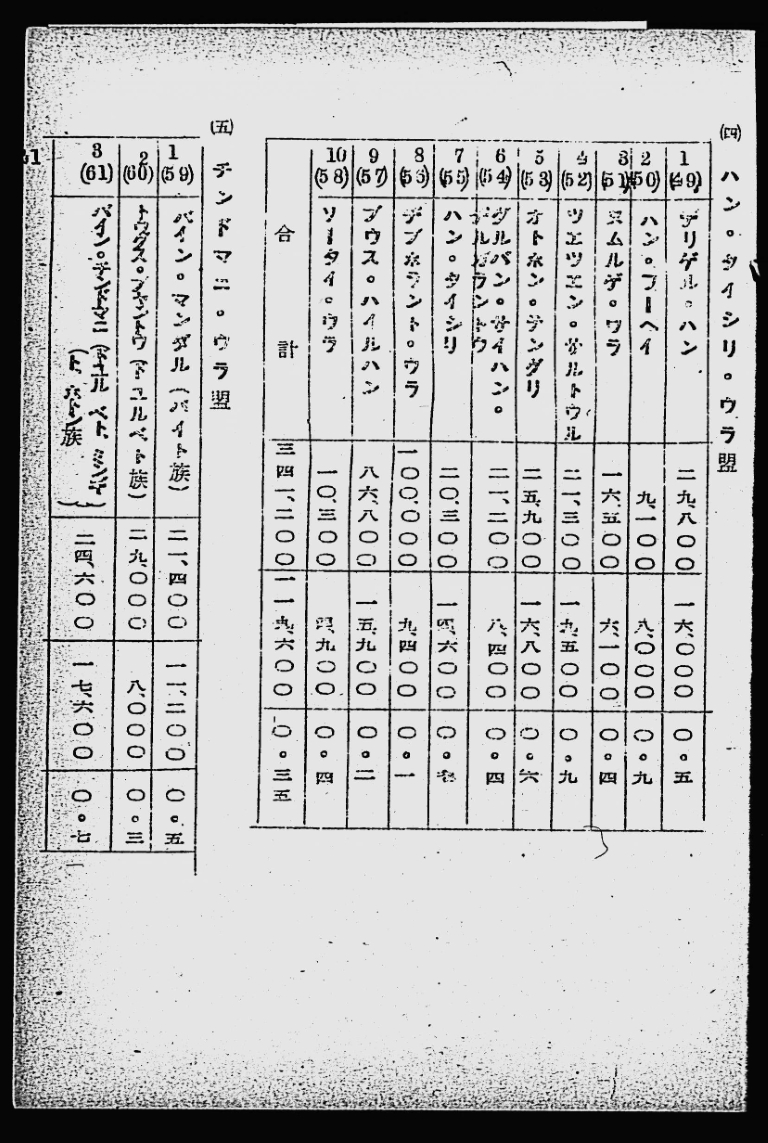 (四) ハン。タイシリ。ウラ盟
1 (49) デリゲル。ハン 二九、八〇〇 一六、〇〇〇 〇。五
2 (50) ハン。フーヘイ 九、一〇〇 八、〇〇〇 〇。九
3 (51) ヌムルゲ。ワラ 一六、五〇〇 六、一〇〇 〇。四
4 (52) ツエツエン。サルトウル 二一、三〇〇 一九、五〇〇 〇。九
5 (53) オトホン。テングリ 二五、九〇〇 一六、八〇〇 〇。六
6 (54) グルバン。サイハン。デルガラントウ 二一、二〇〇 八、四〇〇 〇。四
7 (55) ハン。タイシリ 二〇、三〇〇 一四、六〇〇 〇。七
8 (56) デブホラント。ウラ 一〇〇、〇〇〇 九、四〇〇 〇。一
9 (57) ブウス。ハイルハン 八六、八〇〇 一五、九〇〇 〇。二
10 (58) ソータイ。ウラ 一〇、三〇〇 四、九〇〇 〇。四
合計 三四一、二〇〇 一一九、六〇〇 〇。三五
(五) チンドマニ。ウラ盟
1 (59) バイン。マンダル (バイト族) 二一、四〇〇 一一、二〇〇 〇。五
2 (60) 二九、〇〇〇 八、〇〇〇 〇。三
3 (61) 二四、六〇〇 一七、六〇〇 〇。七